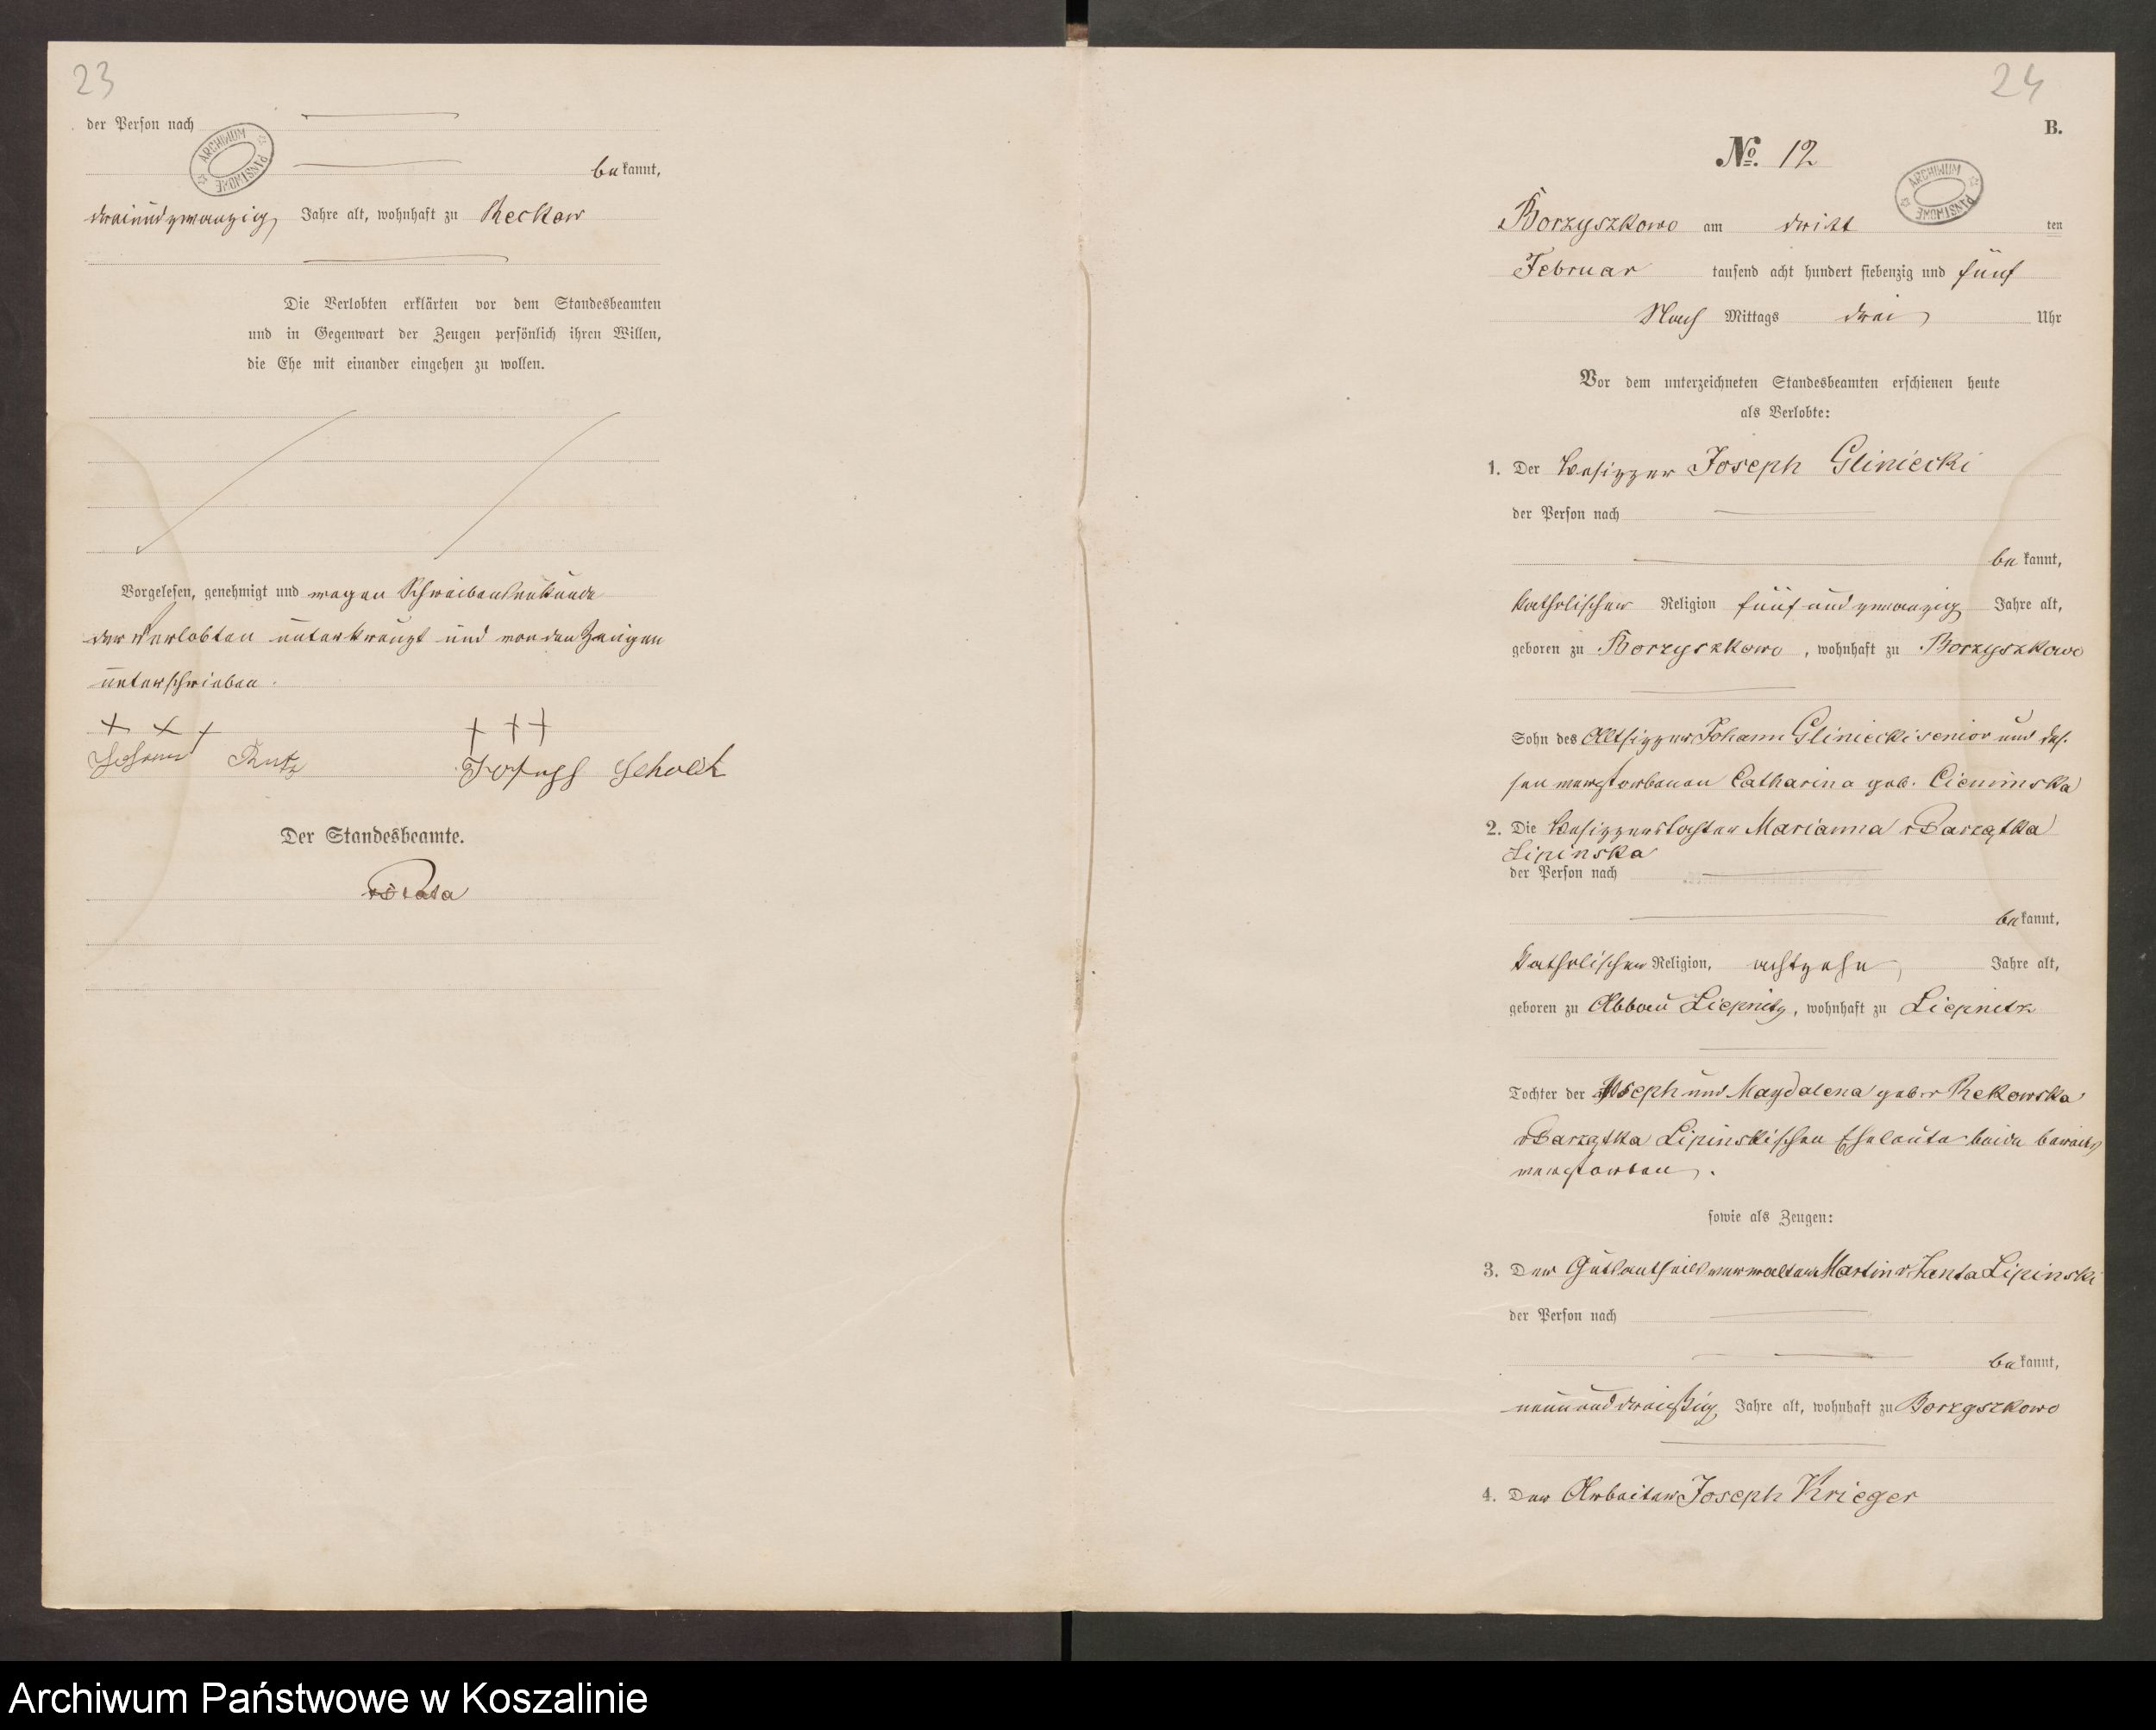 23
der Person nach
ARCHIWUM PAŃSTWOWE
bekannt,
dreiundzwanzig Jahre alt, wohnhaft zu Reckow
Die Verlobten erklärten vor dem Standesbeamten
und in Gegenwart der Zeugen persönlich ihren Willen,
die Ehe mit einander eingehen zu wollen.
Vorgelesen, genehmigt und wegen Schreibensunkunde
der Verlobten unterkreuzt und von den Zeugen
unterschrieben.
+ + + + + +
Johann Joseph
Der Standesbeamte.
24
B.
No. 12
ARCHIWUM PAŃSTWOWE
Borzyszkowo am dritt ten
Februar tausend acht hundert siebenzig und fünf
Nach Mittags drei Uhr
Vor dem unterzeichneten Standesbeamten erschienen heute
als Verlobte:
1. Der Besitzer Joseph Gliniecki
der Person nach
bekannt,
katholischer Religion fünf und zwanzig Jahre alt,
geboren zu Borzyszkowo, wohnhaft zu Borzyszkowo
Sohn des Altsitzer Johann Gliniecki senior und des-
sen verstorbenen Catharina geb. Cieminska
2. Die Besitzerstochter Marianna
Lipinska
der Person nach
bekannt,
katholischer Religion, achtzehn Jahre alt,
geboren zu Abbau Liepnitz, wohnhaft zu Liepnitz
Tochter der Joseph und Magdalena geb. v Rekowska
Lipinskischen Eheleute beide bereits
verstorben.
sowie als Zeugen:
3. Der Gutsantheilsverwalter Martin v Janta Lipinski
der Person nach
bekannt,
neununddreißig Jahre alt, wohnhaft zu Borzyszkowo
4. Der Arbeiter Joseph Krieger
Archiwum Państwowe w Koszalinie